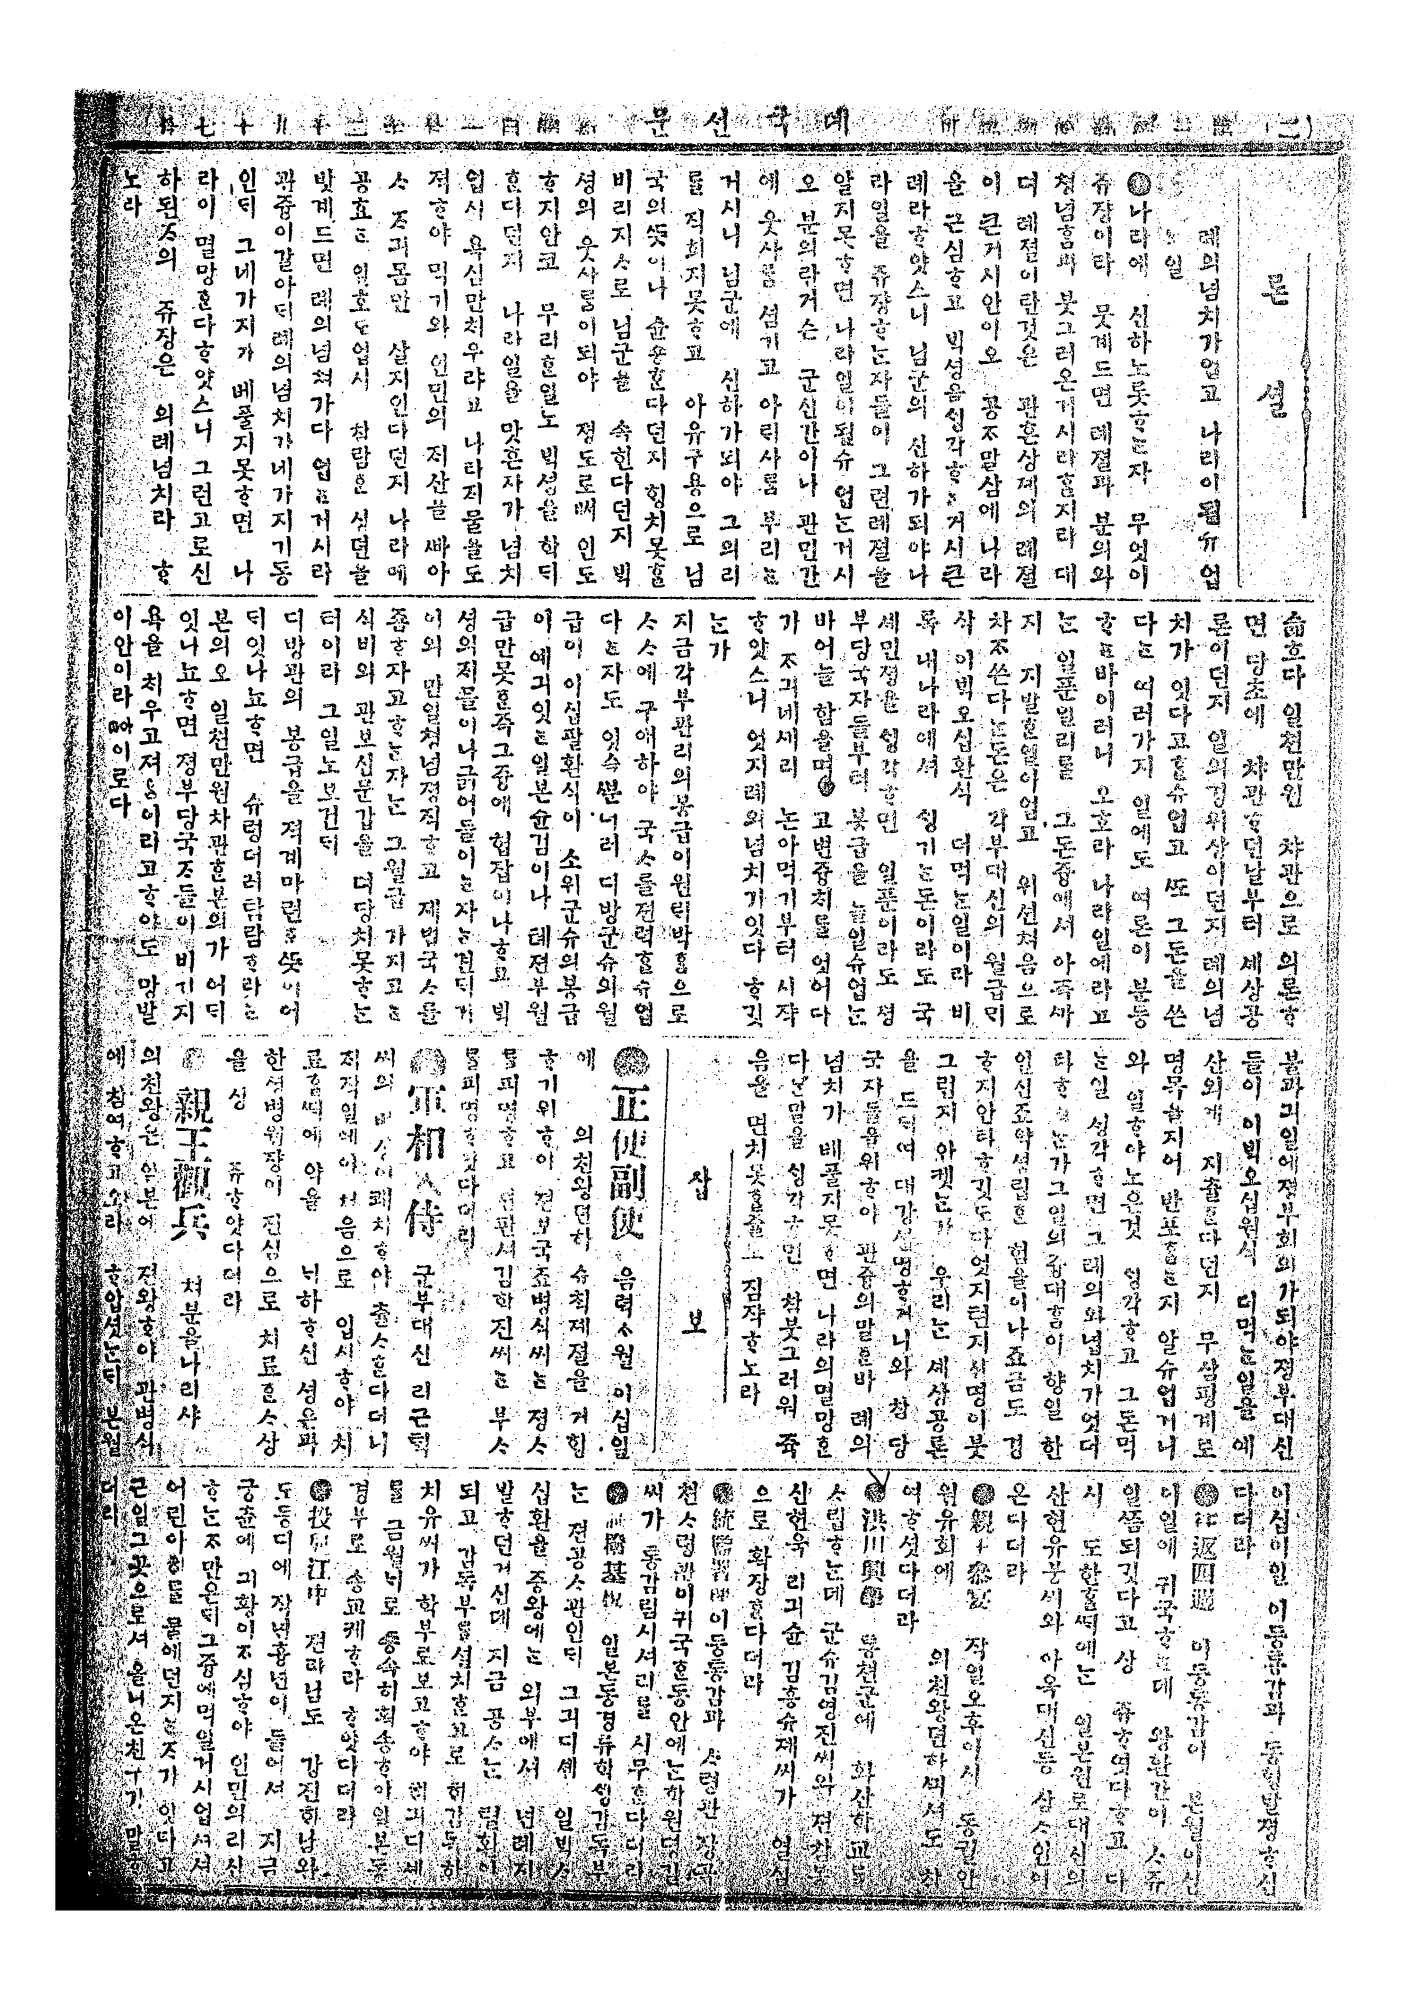 문 선 국 데
론 셜
례의념치가업고 나라이될슈업
●나라에 신하노롯ᄒᆞᄂᆞᆫ자 무엇이
쥬쟝이랴 뭇게드면 례졀과 분의와
쳥념홈과 붓그러온거시라ᄒᆞᆯ지라 대
뎌 례졀이란것은 관혼상졔의 례졀
이 큰거시안이오 공ᄌᆞ말삼에 나라
을 근심ᄒᆞ고 ᄇᆡᆨ셩을ᄉᆡᆼ각ᄒᆞᄂᆞᆫ거시큰
례라ᄒᆞ얏스니 님군의 신하가되야나
라일을 쥬쟝ᄒᆞᄂᆞᆫ자들이 그런례졀을
알지못ᄒᆞ면 나라일이될슈 업ᄂᆞᆫ거시
오 분의란거슨 군신간이나 관민간
에 웃사ᄅᆞᆷ 셤기고 아ᄅᆡ사ᄅᆞᆷ 부리ᄂᆞᆫ
거시니 님군에 신하가되야 그의리
를 직희지못ᄒᆞ고 아유구용으로 님
군의ᄯᅳᆺ이나 슌죵ᄒᆞᆫ다던지 ᄒᆡᆼ치못ᄒᆞᆯ
비리지ᄉᆞ로 님군을 속힌다던지 ᄇᆡᆨ
셩의 웃사ᄅᆞᆷ이되야 졍도로ᄡᅥ 인도
ᄒᆞ지안코 무리ᄒᆞᆫ일노 ᄇᆡᆨ셩을학ᄃᆡ
ᄒᆞᆫ다던지 나라일을 맛흔자가 념치
업시 욕심만ᄎᆡ우랴고 나라ᄌᆡ물을도
젹ᄒᆞ야 먹기와 인민의 ᄌᆡ산을 ᄲᅢ아
ᄉᆞ ᄌᆞ긔몸만 살지인다던지 나라에
공효ᄂᆞᆫ 일호도업시 참람ᄒᆞᆫ 실뎐을
밧게드면 례의념쳐가다 업ᄂᆞᆫ거시라
관즁이갈아ᄃᆡ례의념치가네가지기동
인ᄃᆡ 그네가지가 베풀지못ᄒᆞ면 나
라이 멸망ᄒᆞᆫ다ᄒᆞ얏스니 그런고로신
하된ᄌᆞ의 쥬쟝은 의례념치라 ᄒᆞ
노라
슯흐다 일쳔만원 챠관으로 의론ᄒᆞ
면 당초에 챠관ᄒᆞ던날부터 셰상공
론이던지 일의경위상이던지 례의념
치가 잇다고ᄒᆞᆯ슈업고 ᄯᅩ 그돈을 쓴
다ᄂᆞᆫ 여러가지 일에도 여론이 분등
ᄒᆞᄂᆞᆫ바이러니 오호라 나라일에라고
ᄂᆞᆫ 일푼일리를 그돈즁에셔 아즉ᄭᆞ
지 지발ᄒᆞᆫ일이업고 위션쳐음으로
차ᄌᆞ쓴다ᄂᆞᆫ돈은 각부대신의 월급ᄆᆡ
삭 이ᄇᆡᆨ오십환식 더먹ᄂᆞᆫ일이라 비
록 내나라에셔 ᄉᆡᆼ기ᄂᆞᆫ돈이라도 국
셰민졍을 ᄉᆡᆼ각ᄒᆞ면 일푼이라도 졍
부당국자들부터 봉급을 늘일슈업ᄂᆞᆫ
바어늘 고변즁치를 엇어다
가 ᄌᆞ긔네ᄭᅵ리 논아먹기부터 시작
ᄒᆞ얏스니 엇지례의념치가잇다 ᄒᆞ깃
ᄂᆞᆫ가
지금각부관리의봉급이원ᄃᆡ박홈으로
ᄉᆞᄉᆞ에 구애하야 국ᄉᆞ를젼력ᄒᆞᆯ슈업
다ᄂᆞᆫ자도 잇슬ᄲᅮᆫ너러 디방군슈의월
급이 이십팔환식이 소위군슈의봉급
이 예긔잇ᄂᆞᆫ일본슌검이나 톄젼부월
급만못ᄒᆞᆫ즉그즁에 협잡이나ᄒᆞ고 ᄇᆡᆨ
셩의ᄌᆡ물이나긁어들이ᄂᆞᆫ자ᄂᆞᆫ견ᄃᆡ거
니와 만일쳥념졍직ᄒᆞ고 졔법국ᄉᆞ를
좁ᄒᆞ자고ᄒᆞᄂᆞᆫ자ᄂᆞᆫ 그월급 가지고ᄂᆞᆫ
식비와 관보신문갑을 뎌당치못ᄒᆞᄂᆞᆫ
터이라 그일노보건ᄃᆡ
디방관의 봉급을 젹게마련ᄒᆞᆫᄯᅳᆺ이어
ᄃᆡ잇나뇨ᄒᆞ면 슈렴더러탐람ᄒᆞ라ᄂᆞᆫ
본의오 일쳔만원차관ᄒᆞᆫ본의가 어ᄃᆡ
잇나뇨ᄒᆞ면 졍부당국ᄌᆞ들이 비기지
욕을 ᄎᆡ우고져홈이라고ᄒᆞ야도 망발
이안이라ᄒᆞᆯ바이로다
불과긔일에졍부회의가되야졍부대신
들이 이ᄇᆡᆨ오십원식 더먹ᄂᆞᆫ일을 예
산외에 지츌ᄒᆞᆫ다던지 무삼핑계로
명목을지어 반포ᄒᆞᆯᄂᆞᆫ지 알슈업거니
와 일ᄒᆞ야노은것 ᄉᆡᆼ각ᄒᆞ고 그돈먹
ᄂᆞᆫ일 ᄉᆡᆼ각ᄒᆞ면 그례의와념치가엇더
타ᄒᆞᄂᆞᆫ가그일의즁대홈이 향일 한
일신죠약셩립ᄒᆞᆫ 험을이나죠금도 경
ᄒᆞ지안타ᄒᆞ깃도다엇지던지셔명이붓
그럽지 아켓ᄂᆞᆫ가 우리ᄂᆞᆫ셰상공론
을 드르여 대강셜명ᄒᆞ거니와 참 당
국자들을위ᄒᆞ야 관즁의말ᄒᆞᆫ바 례의
념치가 베풀지못ᄒᆞ면 나라의멸망ᄒᆞᆫ
다ᄂᆞᆫ말을 ᄉᆡᆼ각ᄒᆞ면 참붓그러워 쥭
음을 면치못ᄒᆞᆯ줄노 짐쟉ᄒᆞ노라
잡 보
●正使副使 음력ᄉᆞ월 이십일
에 의친왕뎐하 슈ᄎᆡᆨ졔졀을 거ᄒᆡᆼ
ᄒᆞ기위ᄒᆞ야 젼보국죠병식씨ᄂᆞᆫ 졍ᄉᆞ
를피명ᄒᆞ고 젼판셔김학진씨ᄂᆞᆫ 부ᄉᆞ
를피명ᄒᆞ얏다더라
●軍相入侍 군부대신 리근ᄐᆡᆨ
씨의 병상이쾌차ᄒᆞ야 츌ᄉᆞᄒᆞᆫ다더니
ᄌᆡ작일에야 쳐음으로 입시ᄒᆞ야 치
료ᄒᆞᆯᄯᅢ에 약을 ᄂᆡ하ᄒᆞ신 셩은과
한셩병원쟝이 진심으로 치료ᄒᆞᆫᄉᆞ상
을 상 쥬ᄒᆞ얏다더라
●親王觀兵 쳐분을나리샤
의친왕은 일본에 젼왕ᄒᆞ야 관병식
에 참여ᄒᆞ고오라 ᄒᆞ압셧ᄂᆞᆫᄃᆡ 본월
이십이일 이등통감과 동ᄒᆡᆼ발졍ᄒᆞ신
다더라
이등통감이 본월이십
이일에 귀국ᄒᆞᄂᆞᆫ데 왕환간이 ᄉᆞ쥬
일ᄶᅳᆷ되깃다고 상 쥬ᄒᆞ엿다ᄒᆞ고 다
시 도한ᄒᆞᆯᄯᅢ에ᄂᆞᆫ 일본원로대신의
산현유붕씨와 아옥대신등 삼ᄉᆞ인이
온다더라
작일오후이시 동궐안
원유회에 의친왕뎐하ᄭᅴ셔도 참
여ᄒᆞ셧다더라
●洪川興學 통쳔군에 화산학교를
ᄉᆞ립ᄒᆞᄂᆞᆫ데 군슈김영진씨와 젼찬모
신현욱 리긔슌 김흥슈졔씨가 열심
으로 확쟝ᄒᆞᆫ다더라
이등통감과 ᄉᆞ령관 쟝곡
쳔ᄉᆞ령관이귀국ᄒᆞᆫ동안에ᄂᆞᆫ학원뎡길
씨가 통감림시셔리를 시무ᄒᆞᆫ다더라
일본동경류학ᄉᆡᆼ감독부
ᄂᆞᆫ 젼공ᄉᆞ관인ᄃᆡ 그긔디셰 일ᄇᆡᆨᄉᆞ
십환을 증왕에ᄂᆞᆫ 외부에셔 년례지
발ᄒᆞ던거신데 지금 공ᄉᆞᄂᆞᆫ 텰환이
되고 감독부를셜치ᄒᆞᆫ고로 한감독하
치유씨가 학부로보고ᄒᆞ야 원긔디셰
를 금월ᄂᆡ로 종속히획송ᄒᆞ야일본동
경부로 송교케ᄒᆞ라 ᄒᆞ얏다더라
●投兒江中 젼라남도 강진하남와
도등디에 쟉년흉년이 들어셔 지금
궁츈에 긔황이ᄌᆞ심ᄒᆞ야 인민의리산
ᄒᆞᄂᆞᆫᄌᆞ만은ᄃᆡ그즁에먹일거시업셔셔
어린아ᄒᆡ들 물에던지ᄂᆞᆫᄌᆞ가 잇다고
근일그곳으로셔 올나온친구가 말ᄒᆞ
더라